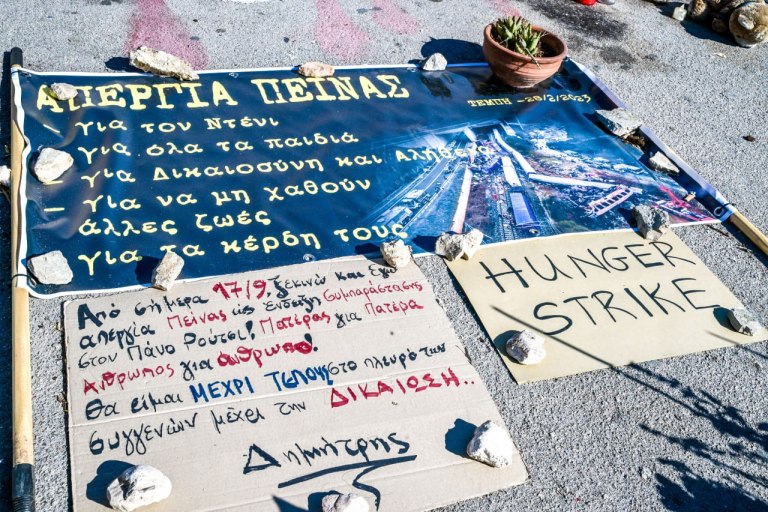 ΑΠΕΡΓΙΑ ΠΕΙΝΑΣ
ΤΕΜΠΗ -28/2/2023
- για τον Ντένι
- για όλα τα παιδιά
- για Δικαιοσύνη και Αλήθεια
- για να μη χαθούν
άλλες ζωές
- για τα κέρδη τους
Από σήμερα 17/9, ξεκινώ και εγώ
απεργία Πείνας ως ένδειξη Συμπαράστασης
στον Πάνο Ρούτσι! Πατέρας για Πατέρα
Άνθρωπος για άνθρωπο!
Θα είμαι ΜΕΧΡΙ ΤΕΛΟΥΣ στο πλευρό των
συγγενών μέχρι την ΔΙΚΑΙΩΣΗ..
Δημήτρης
HUNGER
STRIKE